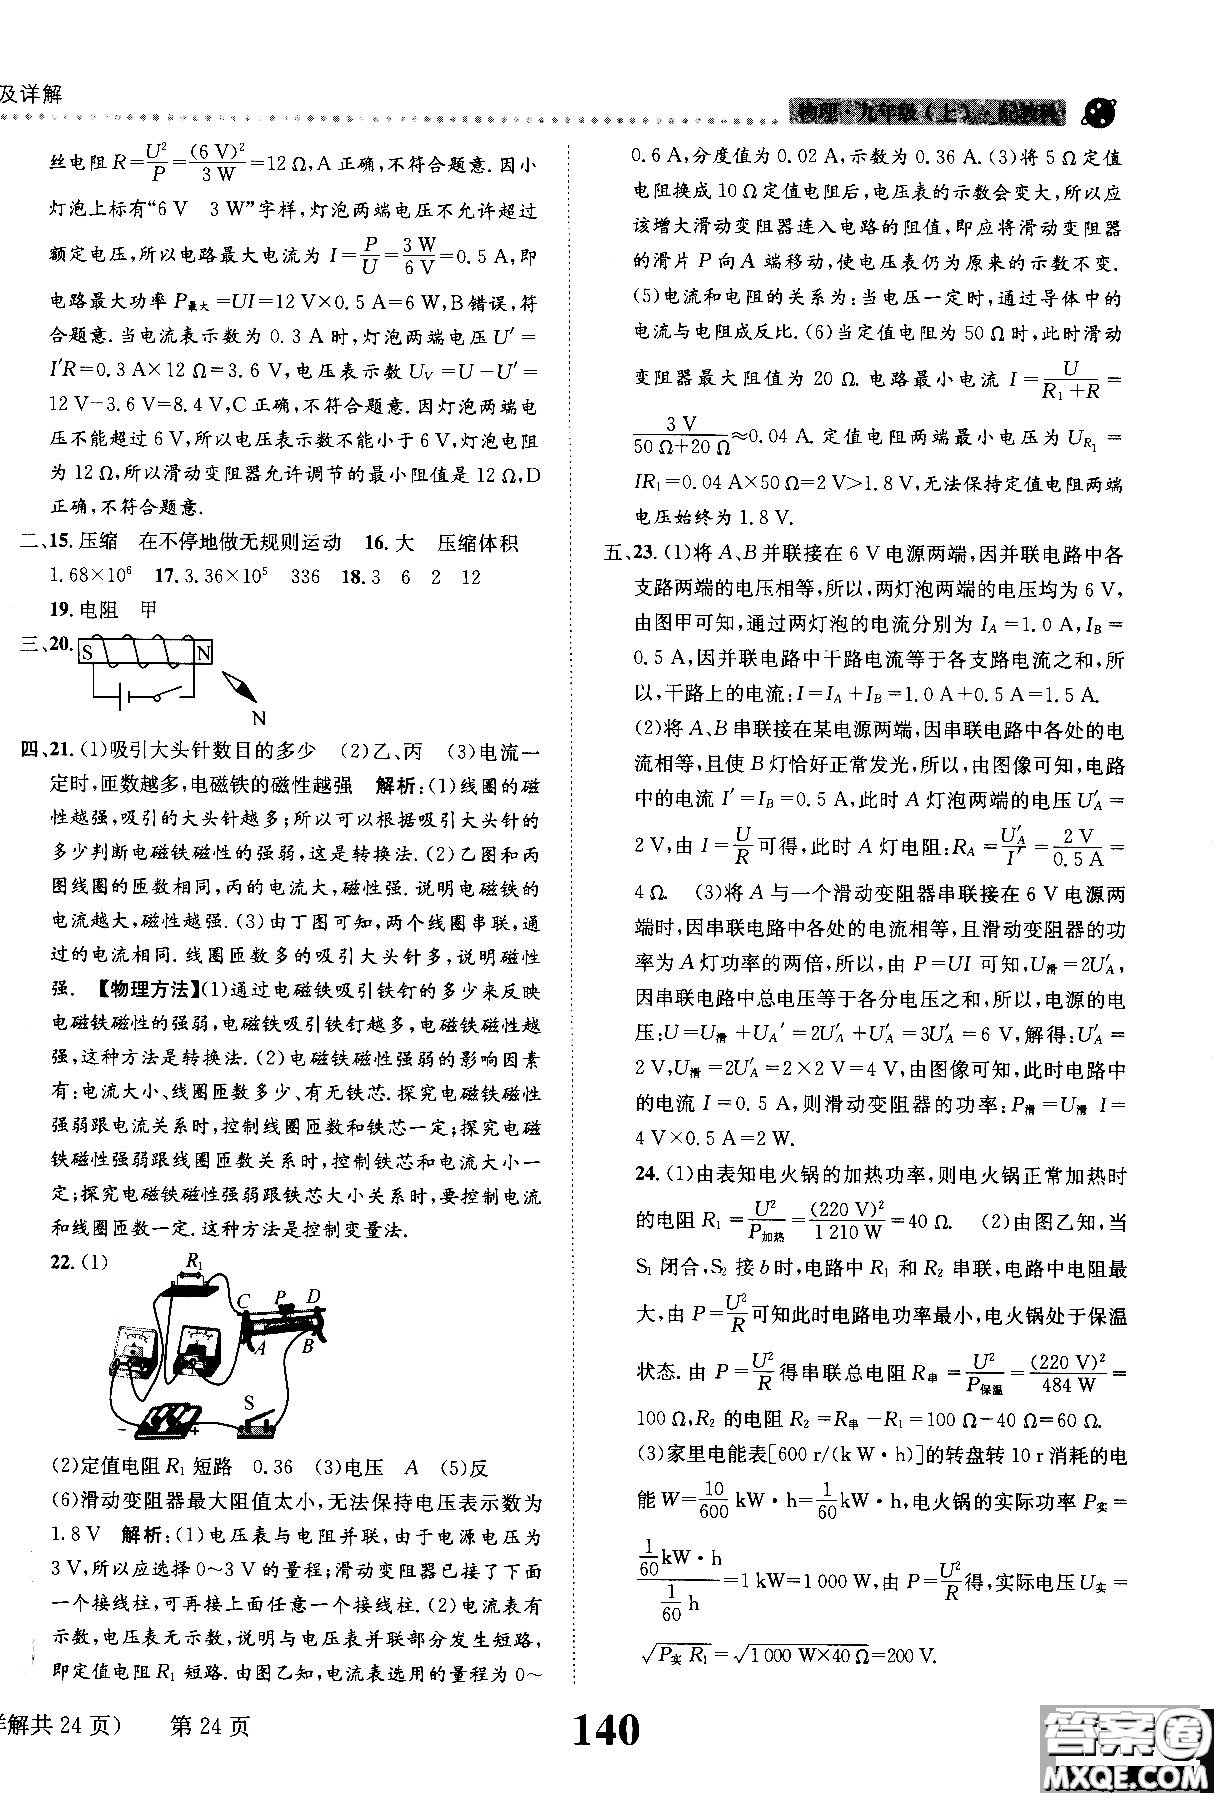 及详解
物理·九年级(上)·配教科
丝电阻R=U²/P=(6 V)²/3 W=12 Ω,A正确,不符合题意.因小
灯泡上标有“6 V 3 W”字样,灯泡两端电压不允许超过
额定电压,所以电路最大电流为 I=P/U=3 W/6 V=0.5 A,即
电路最大功率P最大=UI=12 V×0.5 A=6 W,B错误,符
合题意.当电流表示数为 0.3 A 时,灯泡两端电压U′=
I′R=0.3 A×12 Ω=3.6 V,电压表示数Uᵥ=U-U′=
12 V-3.6 V=8.4 V,C正确,不符合题意.因灯泡两端电
压不能超过6 V,所以电压表示数不能小于6 V,灯泡电阻
为12 Ω,所以滑动变阻器允许调节的最小阻值是12 Ω,D
正确,不符合题意.
二、15.压缩 在不停地做无规则运动 16.大 压缩体积
1.68×10⁶ 17.3.36×10⁵ 336 18.3 6 2 12
19.电阻 甲
三、20.
S N
N
四、21.(1)吸引大头针数目的多少 (2)乙、丙 (3)电流一
定时,匝数越多,电磁铁的磁性越强 解析:(1)线圈的磁
性越强,吸引的大头针越多;所以可以根据吸引大头针的
多少判断电磁铁磁性的强弱,这是转换法.(2)乙图和丙
图线圈的匝数相同,丙的电流大,磁性强.说明电磁铁的
电流越大,磁性越强.(3)由丁图可知,两个线圈串联,通
过的电流相同.线圈匝数多的吸引大头针多,说明磁性
强.【物理方法】(1)通过电磁铁吸引铁钉的多少来反映
电磁铁磁性的强弱,电磁铁吸引铁钉越多,电磁铁磁性越
强,这种方法是转换法.(2)电磁铁磁性强弱的影响因素
有:电流大小、线圈匝数多少、有无铁芯.探究电磁铁磁性
强弱跟电流关系时,控制线圈匝数和铁芯一定;探究电磁
铁磁性强弱跟线圈匝数关系时,控制铁芯和电流大小一
定;探究电磁铁磁性强弱跟铁芯大小关系时,要控制电流
和线圈匝数一定.这种方法是控制变量法.
22.(1)
R₁
C P D
A B
S
- +
(2)定值电阻R₁短路 0.36 (3)电压 A (5)反
(6)滑动变阻器最大阻值太小,无法保持电压表示数为
1.8 V 解析:(1)电压表与电阻并联,由于电源电压为
3 V,所以应选择0~3 V的量程;滑动变阻器已接了下面
一个接线柱,可再接上面任意一个接线柱.(2)电流表有
示数,电压表无示数,说明与电压表并联部分发生短路,
即定值电阻R₁短路.由图乙知,电流表选用的量程为0~
0.6 A,分度值为 0.02 A,示数为 0.36 A.(3)将 5 Ω定值
电阻换成10 Ω定值电阻后,电压表的示数会变大,所以应
该增大滑动变阻器连入电路的阻值,即应将滑动变阻器
的滑片 P 向 A 端移动,使电压表仍为原来的示数不变.
(5)电流和电阻的关系为:当电压一定时,通过导体中的
电流与电阻成反比.(6)当定值电阻为50 Ω时,此时滑动
变阻器最大阻值为 20 Ω.电路最小电流 I=U/(R₁+R)=
3 V/(50 Ω+20 Ω)≈0.04 A.定值电阻两端最小电压为U_R₁=
IR₁=0.04 A×50 Ω=2 V>1.8 V,无法保持定值电阻两端
电压始终为1.8 V.
五、23.(1)将A、B并联接在6 V电源两端,因并联电路中各
支路两端的电压相等,所以,两灯泡两端的电压均为6 V,
由图甲可知,通过两灯泡的电流分别为 I_A=1.0 A,I_B=
0.5 A,因并联电路中干路电流等于各支路电流之和,所
以,干路上的电流:I=I_A+I_B=1.0 A+0.5 A=1.5 A.
(2)将A、B串联接在某电源两端,因串联电路中各处的电
流相等,且使B灯恰好正常发光,所以,由图像可知,电路
中的电流 I′=I_B=0.5 A,此时 A 灯泡两端的电压U′_A=
2 V,由 I=U/R可得,此时 A 灯电阻:R_A=U′_A/I′=2 V/0.5 A=
4 Ω. (3)将 A 与一个滑动变阻器串联接在 6 V 电源两
端时,因串联电路中各处的电流相等,且滑动变阻器的功
率为A灯功率的两倍,所以,由 P=UI 可知,U滑=2U′_A,
因串联电路中总电压等于各分电压之和,所以,电源的电
压:U=U滑+U_A′=2U′_A+U′_A=3U′_A=6 V,解得:U′_A=
2 V,U滑=2U′_A=2×2 V=4 V,由图像可知,此时电路中
的电流 I=0.5 A,则滑动变阻器的功率:P滑=U滑 I=
4 V×0.5 A=2 W.
24.(1)由表知电火锅的加热功率,则电火锅正常加热时
的电阻 R₁=U²/P加热=(220 V)²/1 210 W=40 Ω. (2)由图乙知,当
S₁闭合,S₂接b时,电路中R₁和R₂串联,电路中电阻最
大,由 P=U²/R可知此时电路电功率最小,电火锅处于保温
状态.由 P=U²/R得串联总电阻 R串=U²/P保温=(220 V)²/484 W=
100 Ω,R₂的电阻R₂=R串-R₁=100 Ω-40 Ω=60 Ω.
(3)家里电能表[600 r/(kW·h)]的转盘转10 r消耗的电
能 W=10/600 kW·h=1/60 kW·h,电火锅的实际功率 P实=
(1/60 kW·h)/(1/60 h)=1 kW=1 000 W,由 P=U²/R得,实际电压U实=
√(P实 R₁)=√(1 000 W×40 Ω)=200 V.
详解共24页) 第24页
140
答案圈
MXQE.COM